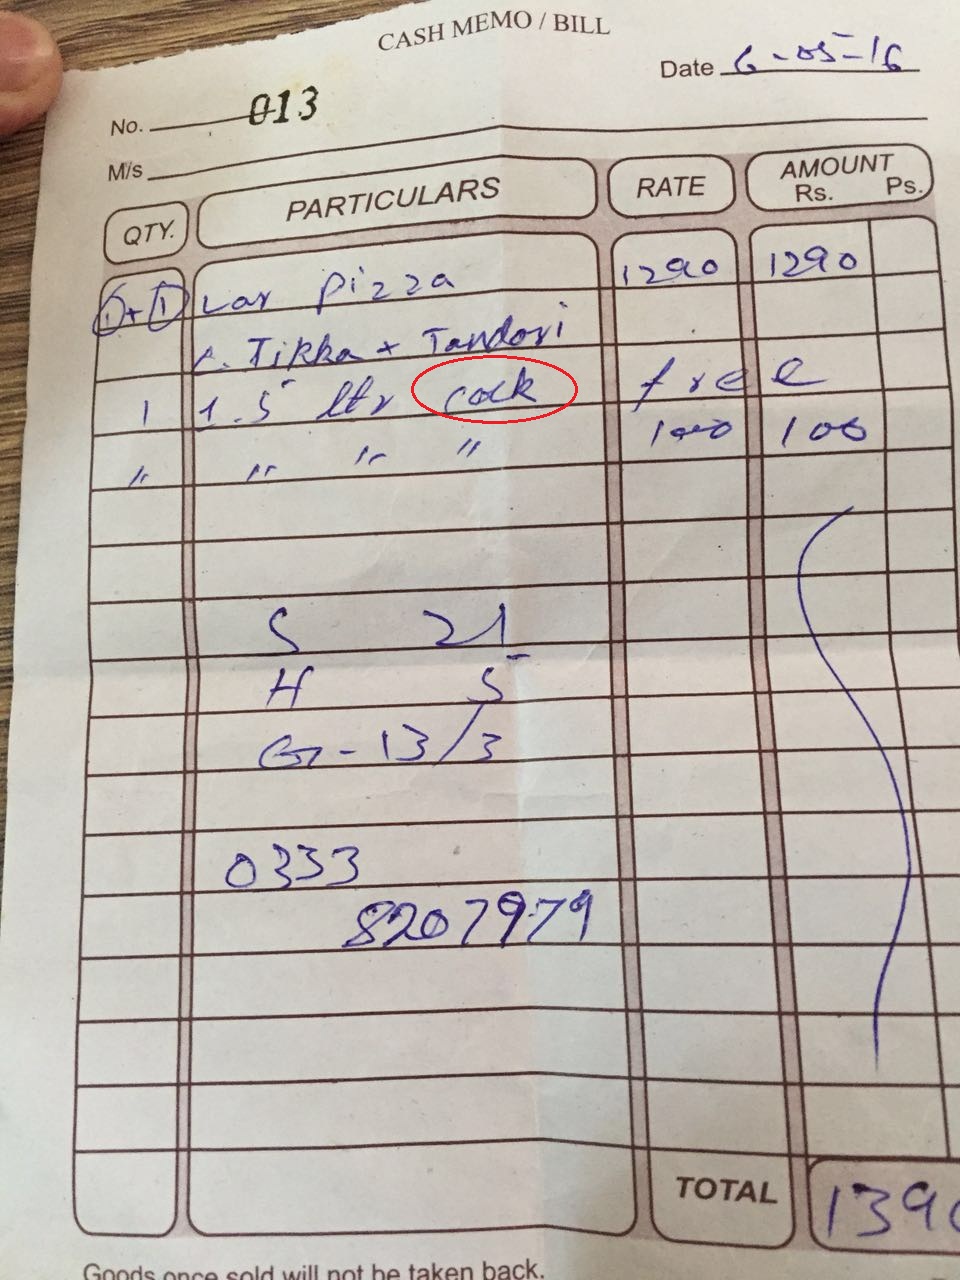 CASH MEMO / BILL
Date 6-05-16
No. 013
M/s
QTY. PARTICULARS RATE AMOUNT
Rs. Ps.
1+1 Lar pizza 1290 1290
c. Tikka + Tandori
1 1.5 ltr cock free
" " " " 100 100
S 21
H 5
G-13/3
0333
8207979
TOTAL 1390
Goods once sold will not be taken back.